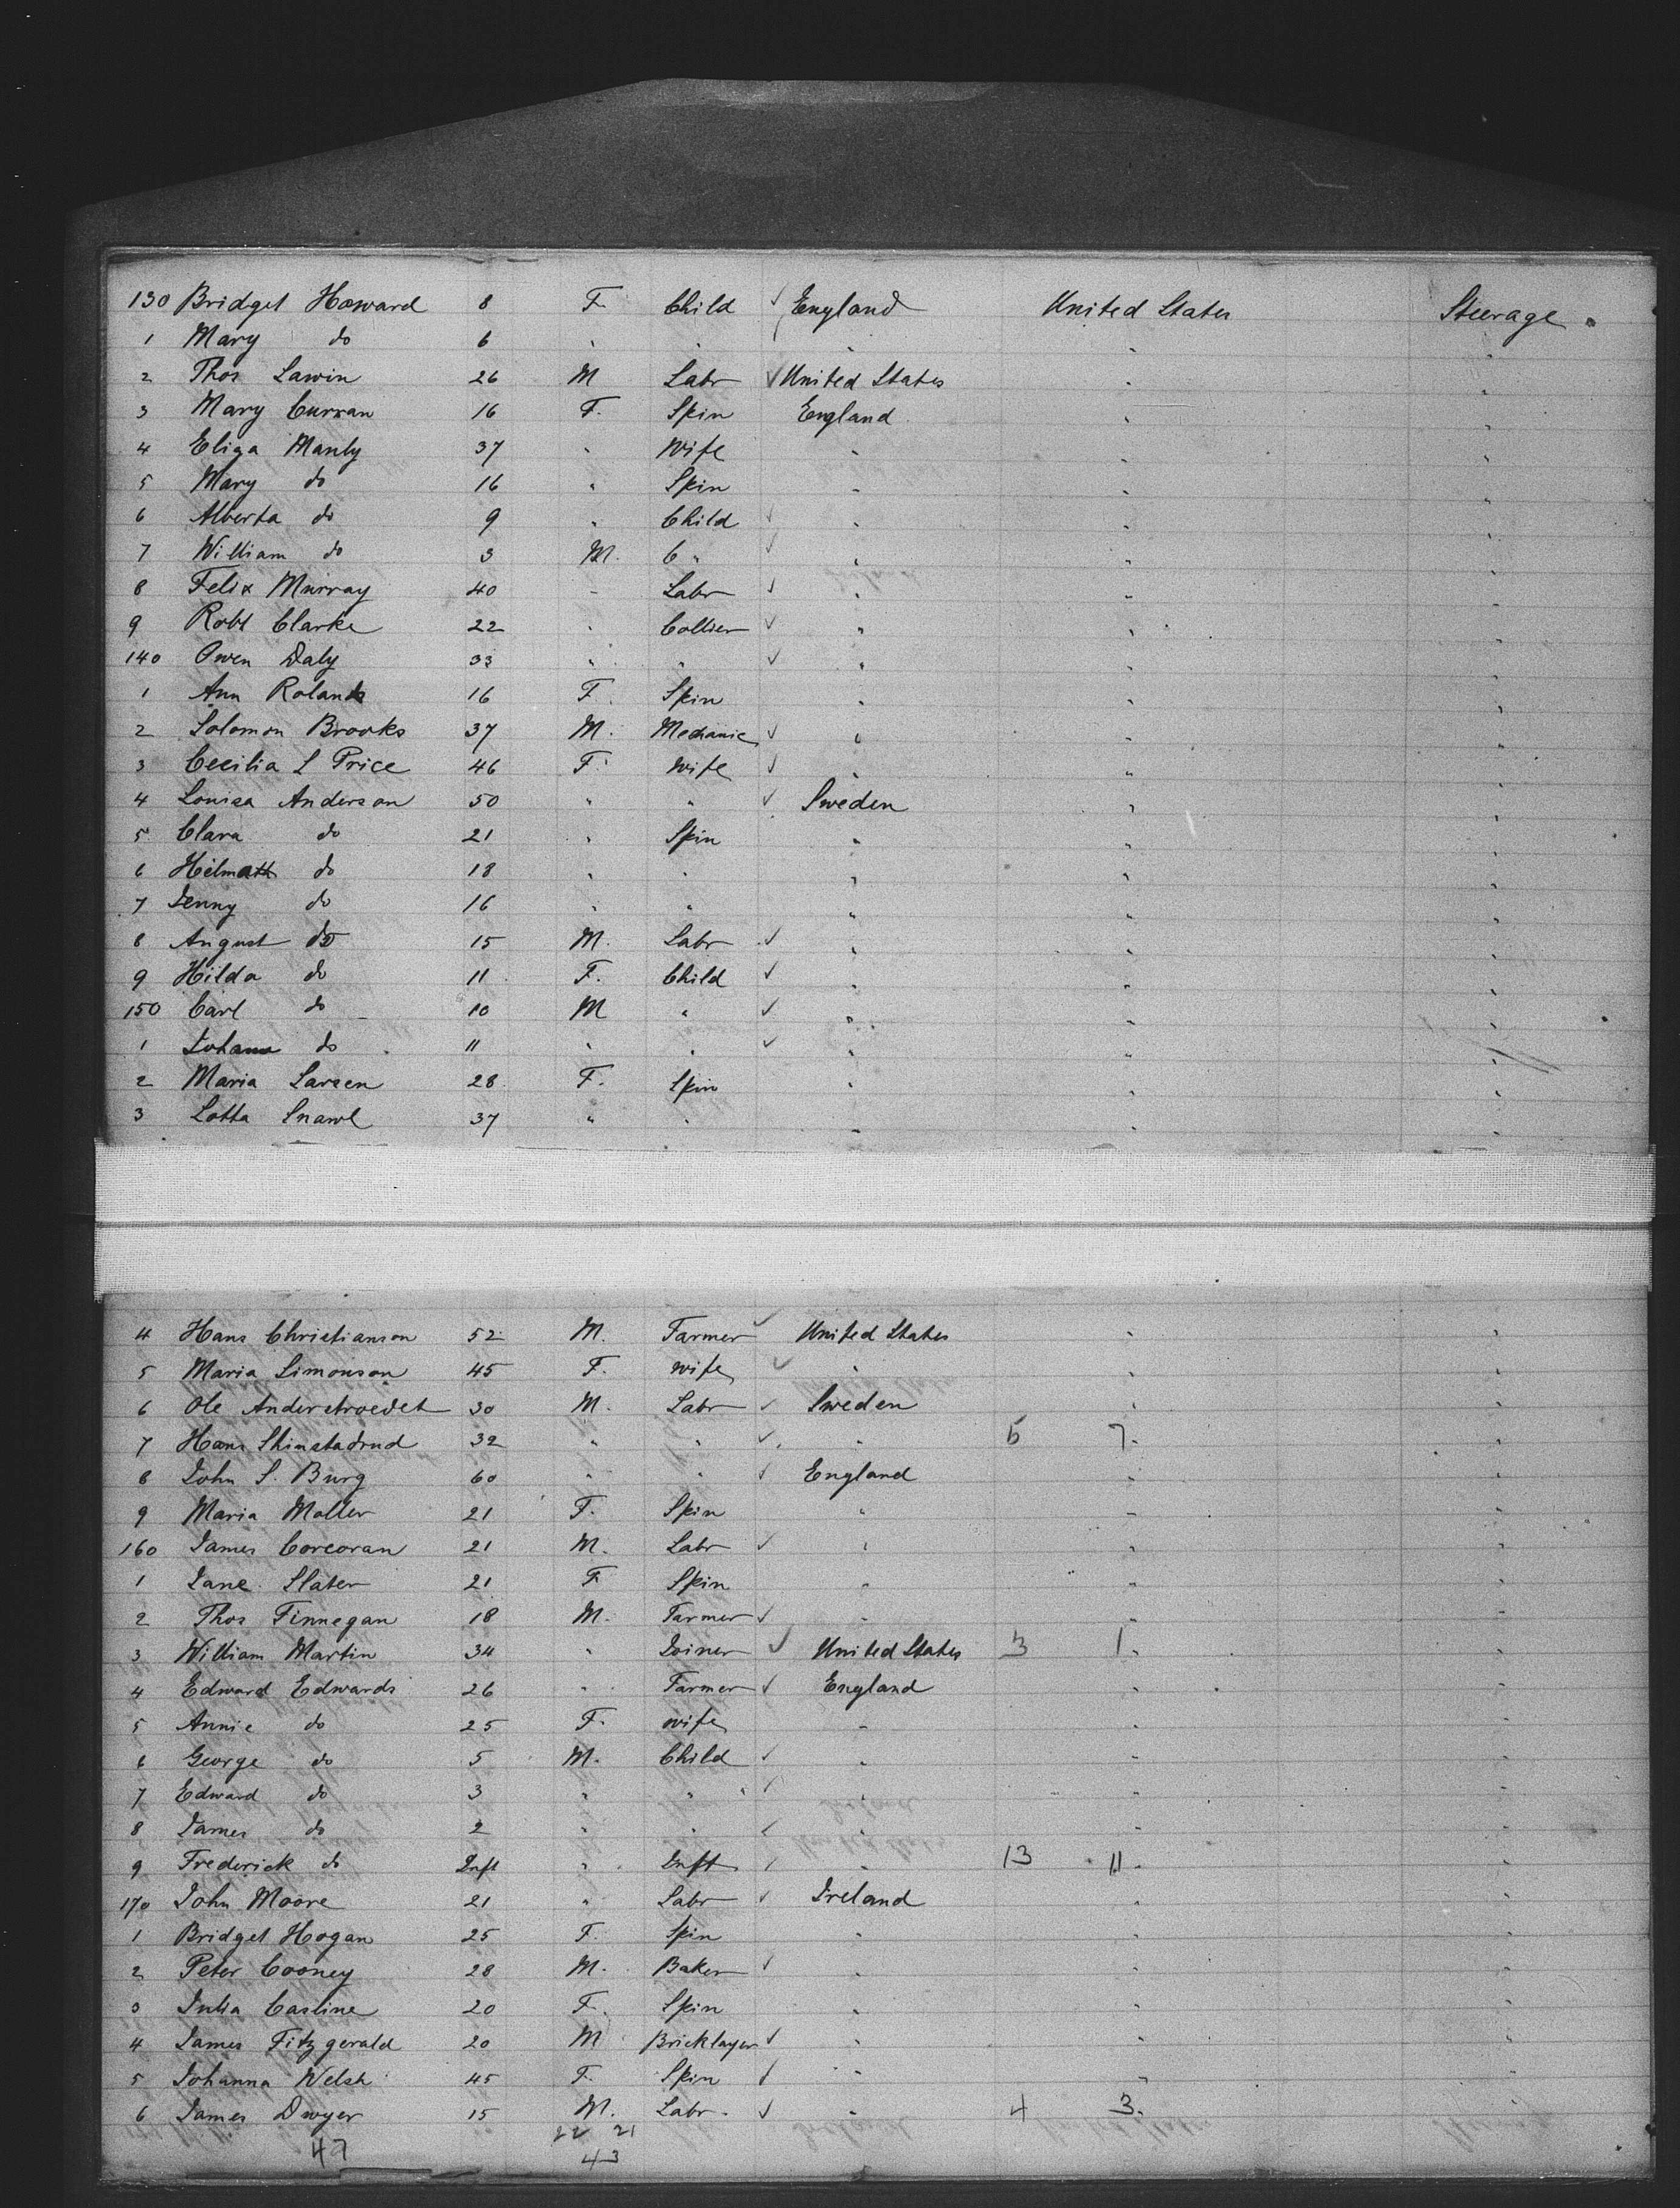 130 Bridget Howard 8 F. Child ✓ England United States Steerage
1 Mary do 6 " " " " "
2 Thos Lawin 26 M Labr ✓ United States " "
3 Mary Curran 16 F. Spin England " "
4 Eliza Manly 37 " Wife " " "
5 Mary do 16 " Spin " " "
6 Alberta do 9 " Child ✓ " " "
7 William do 3 M. C " ✓ " " "
8 Felix Murray 40 " Labr ✓ " " "
9 Robt Clarke 22 " Collier ✓ " " "
140 Owen Daly 33 " " ✓ " " "
1 Ann Rolands 16 F. Spin " " "
2 Solomon Brooks 37 M. Mechanic ✓ " " "
3 Cecilia L Price 46 F. Wife ✓ " " "
4 Louisa Anderson 50 " " ✓ Sweden " "
5 Clara do 21 " Spin " " "
6 do 18 " " " " "
7 Jenny do 16 " " " " "
8 August do 15 M. Labr ✓ " " "
9 Hilda do 11 F. Child ✓ " " "
150 Carl do 10 M " ✓ " " "
1 do 11 " " ✓ " " "
2 Maria Larsen 28 F. Spin " " "
3 Lotta 37 " " " " "
4 Hans Christianson 52 M. Farmer ✓ United States " "
5 Maria Simonson 45 F. wife ✓ " " "
6 Ole 30 M. Labr ✓ Sweden " "
7 Hans 32 " " ✓ " 5 7 " "
8 John S. Burg 60 " " ✓ England " "
9 Maria Moller 21 F. Spin " " "
160 James Corcoran 21 M. Labr ✓ " " "
1 Jane Slater 21 F Spin " " "
2 Thos Finnegan 18 M. Farmer ✓ " " "
3 William Martin 34 " Joiner ✓ United States 3 1 " "
4 Edward Edwards 26 " Farmer ✓ England " "
5 Annie do 25 F. wife " " "
6 George do 5 M. Child ✓ " " "
7 Edward do 3 " " ✓ " " "
8 James do 2 " " ✓ " " "
9 Frederick do Inft " Inft ✓ " 13 11 " "
170 John Moore 21 " Labr ✓ Ireland " "
1 Bridget Hogan 25 F. Spin " " "
2 Peter Cooney 28 M. Baker ✓ " " "
3 Julia Casline 20 F. Spin " " "
4 James Fitzgerald 20 M Bricklayer ✓ " " "
5 Johanna Welsh 45 F. Spin ✓ " " "
6 James Dwyer 15 M. Labr. ✓ " 4 3 " "
22 21
47 43